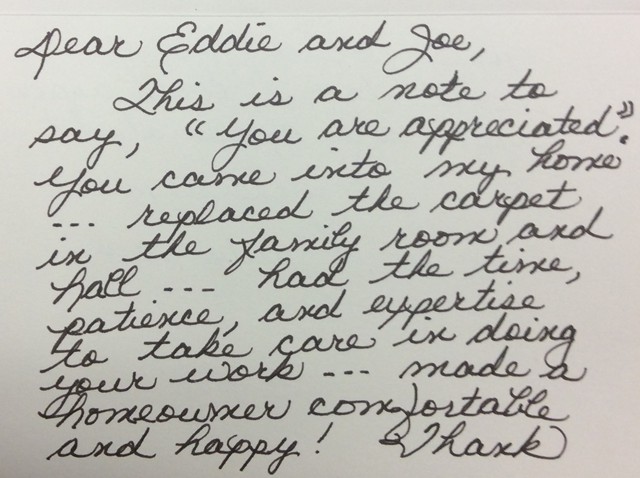 Dear Eddie and Joe,
This is a note to
say, "You are appreciated".
You came into my home
... replaced the carpet
in the family room and
hall --- had the time,
patience, and expertise
to take care in doing
your work --- made a
homeowner comfortable
and happy! Thank